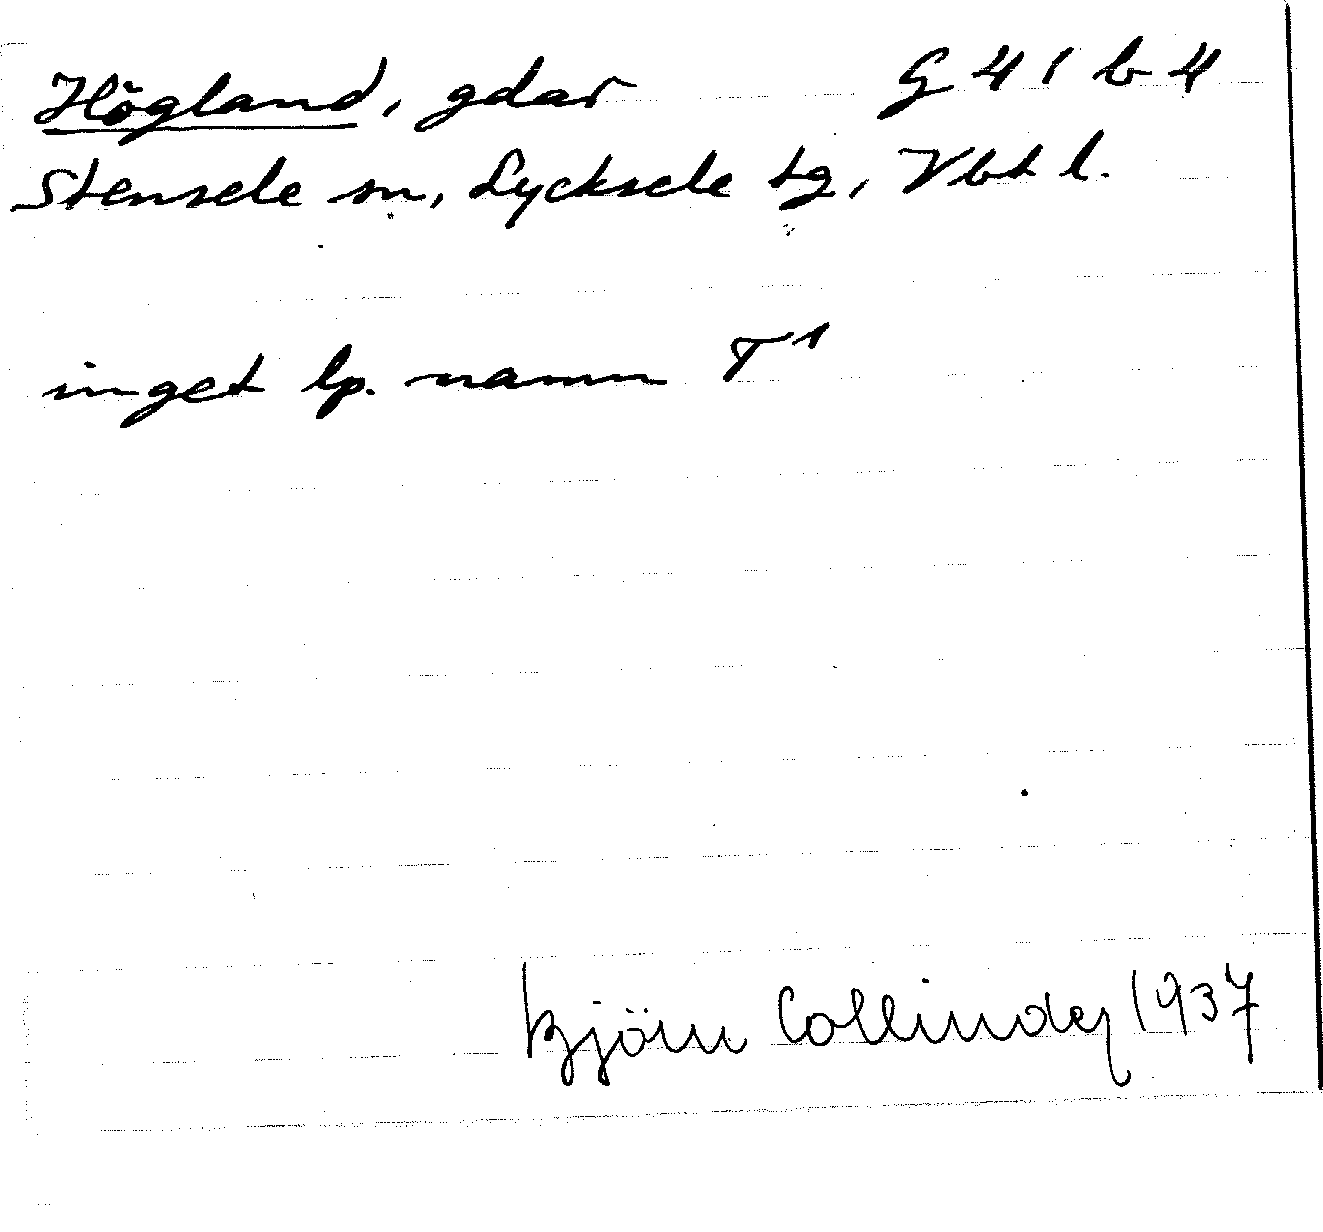 Högland, gdar G 41 b 4
Stensele sn, Lycksele tg, Vbt l.
inget lp. namn T¹
Björn Collinder 1937